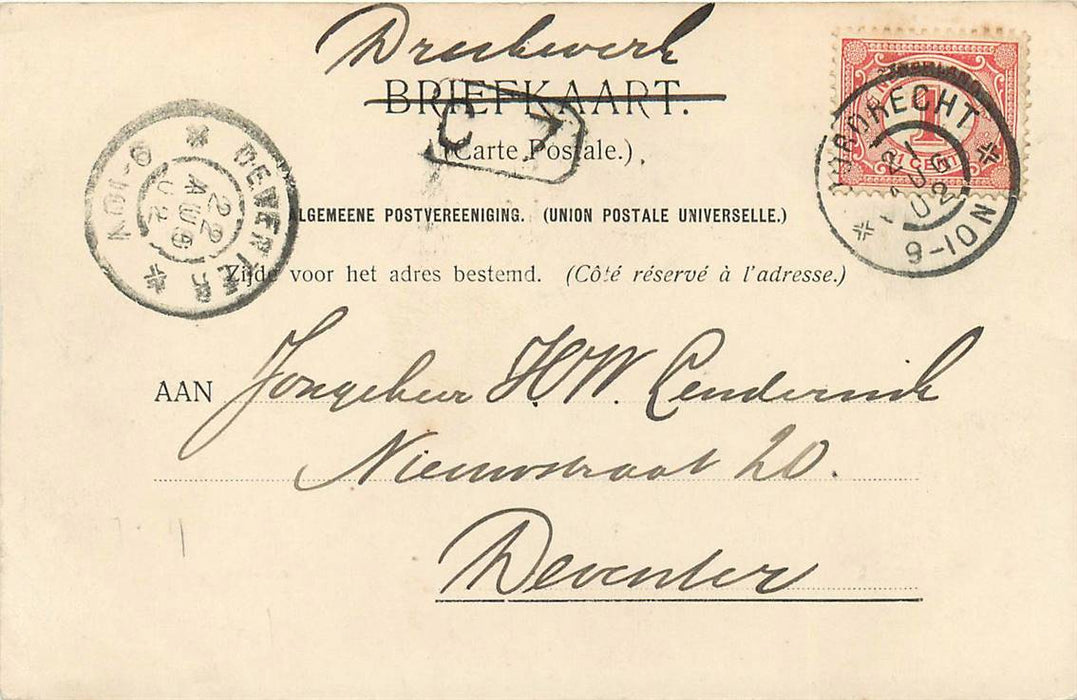 Drukwerk
BRIEFKAART.
(Carte Postale.)
ALGEMEENE POSTVEREENIGING. (UNION POSTALE UNIVERSELLE.)
Zijde voor het adres bestemd. (Côté réservé à l'adresse.)
AAN Jongeheer H.W.
Nieuwstraat 20.
Deventer
DORDRECHT
21 AUG 02
9-10N
1 CENT
DEVENTER
22 AUG 02
6-10V